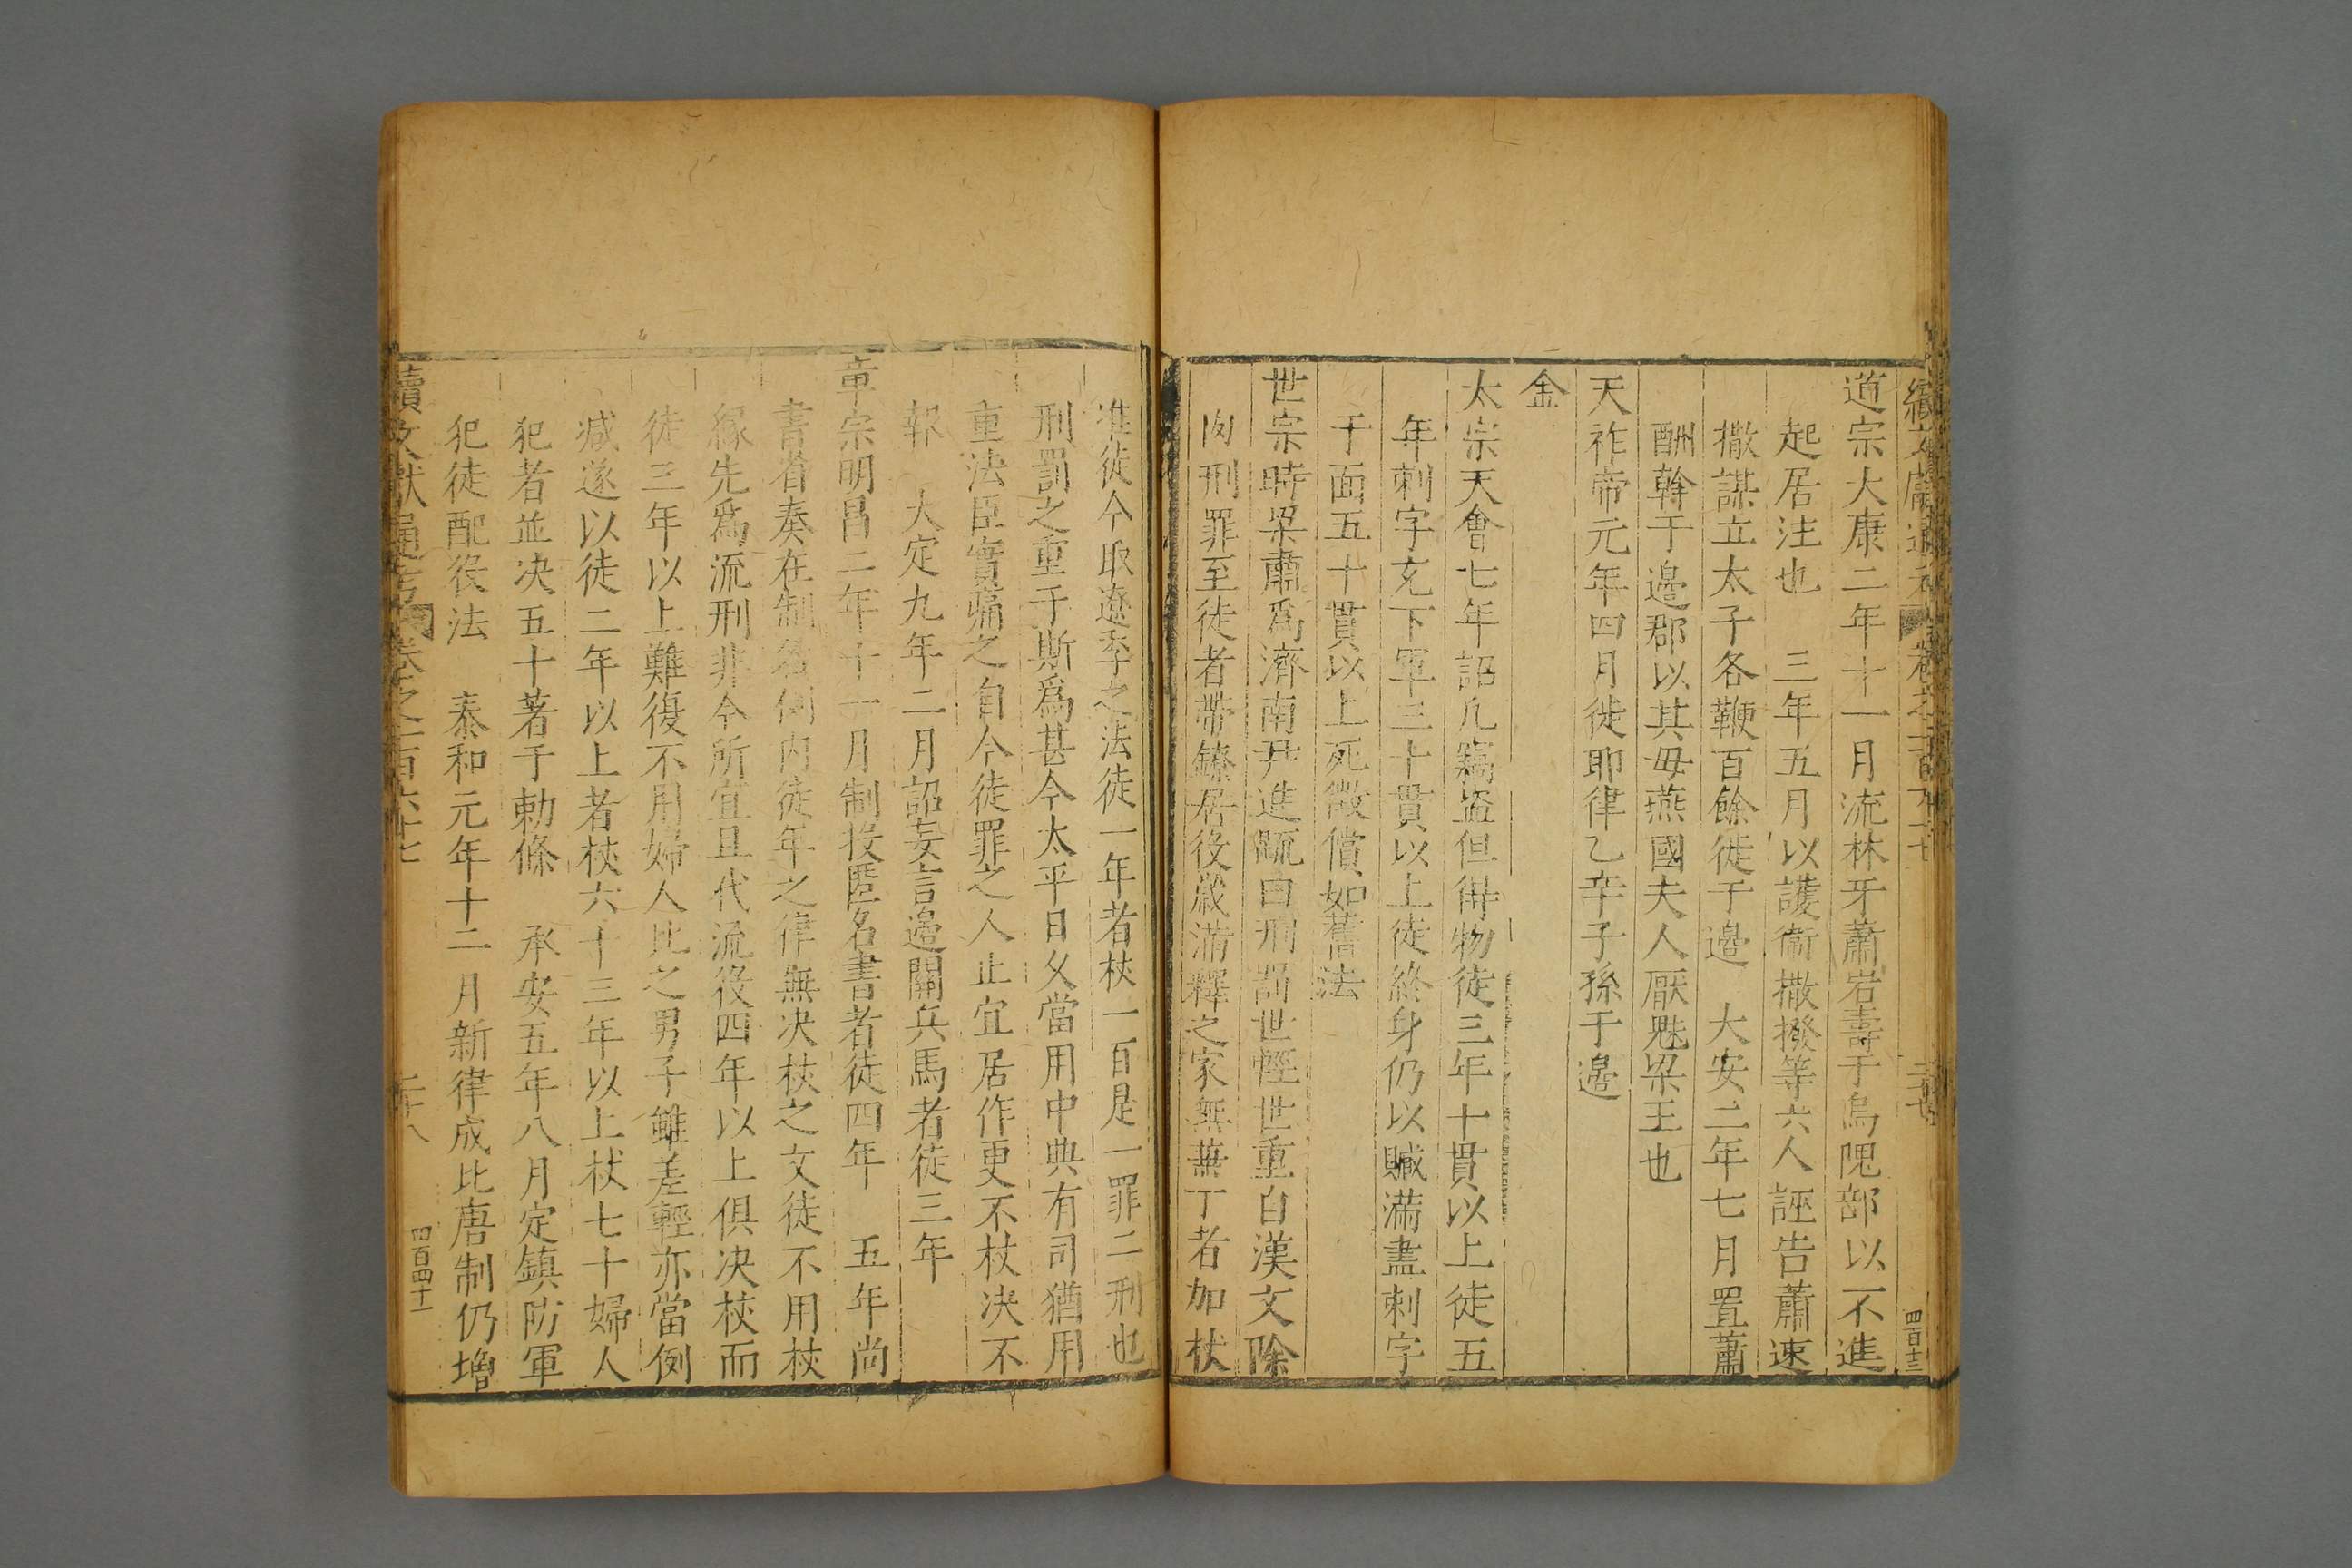 續文獻通考 卷之一百六十七 二十七 四百十三
道宗大康二年十一月流林牙蕭岩壽于烏隗部以不進
起居注也 三年五月以護衞撒撥等六人誣告蕭速
撒謀立太子各鞭百餘徙于邊 大安二年七月置蕭
酬斡于邊郡以其母燕國夫人厭魅梁王也
天祚帝元年四月徙耶律乙辛子孫于邊
金
太宗天會七年詔凡竊盗但得物徒三年十貫以上徒五
年刺字充下軍三十貫以上徒終身仍以贓滿盡刺字
于面五十貫以上死徵償如舊法
世宗時梁肅爲濟南尹進䟽曰刑罰世輕世重自漢文除
肉刑罪至徒者帶鐐居役歲滿釋之家無兼丁者加杖
准徒今取遼季之法徒一年者杖一百是一罪二刑也
刑罰之重于斯爲甚今太平日久當用中典有司猶用
重法臣實痛之自今徒罪之人止宜居作更不杖决不
報 大定九年二月詔妄言邉關兵馬者徒三年
章宗明昌二年十一月制投匿名書者徒四年 五年尚
書省奏在制名例内徒年之律無决杖之文徒不用杖
緣先爲流刑非今所宜且代流役四年以上俱决杖而
徒三年以上難復不用婦人比之男子雖差輕亦當例
减遂以徒二年以上者杖六十三年以上杖七十婦人
犯者並决五十著于勅條 承安五年八月定鎮防軍
犯徒配役法 泰和元年十二月新律成比唐制仍增
續文獻通考 卷之一百六十七 二十八 四百四十一